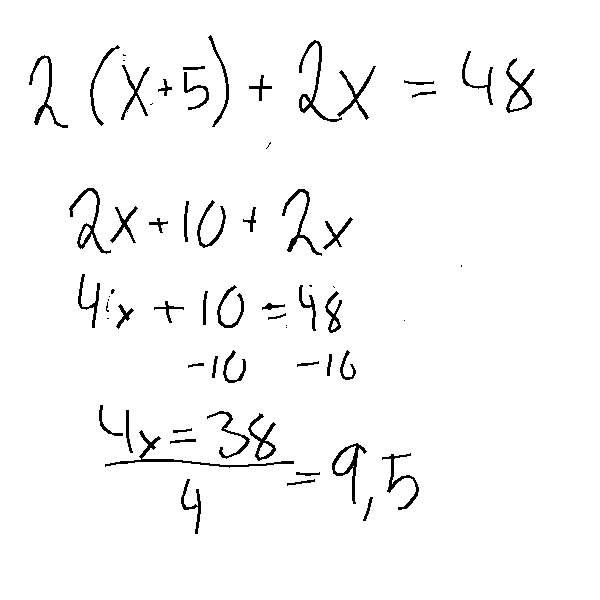 2(x+5)+2x=48
2x+10+2x
4x+10=48
-10 -10
4x=38
4 =9,5